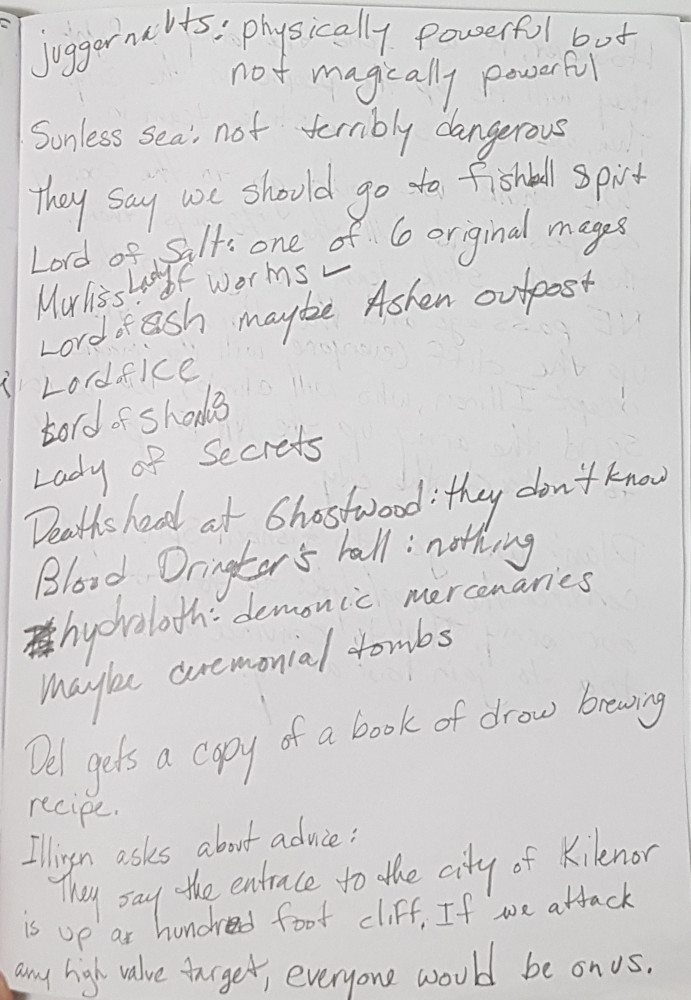 juggernauts: physically powerful but
not magically powerful
Sunless sea: not terribly dangerous
They say we should go to fishball spirit
Lord of Salt: one of 6 original mages
Murliss: Lady of worms ✓
Lord of ash maybe Ashen outpost
Lord of Ice
Lord of
Lady of Secrets
Deaths head at Ghostwood: they don't know
Blood Drinker's hall: nothing
hydroloth: demonic mercenaries
maybe ceremonial tombs
Del gets a copy of a book of drow brewing
recipe.
Illiren asks about advice:
They say the entrace to the city of Kilenor
is up a hundred foot cliff. If we attack
any high value target, everyone would be on us.